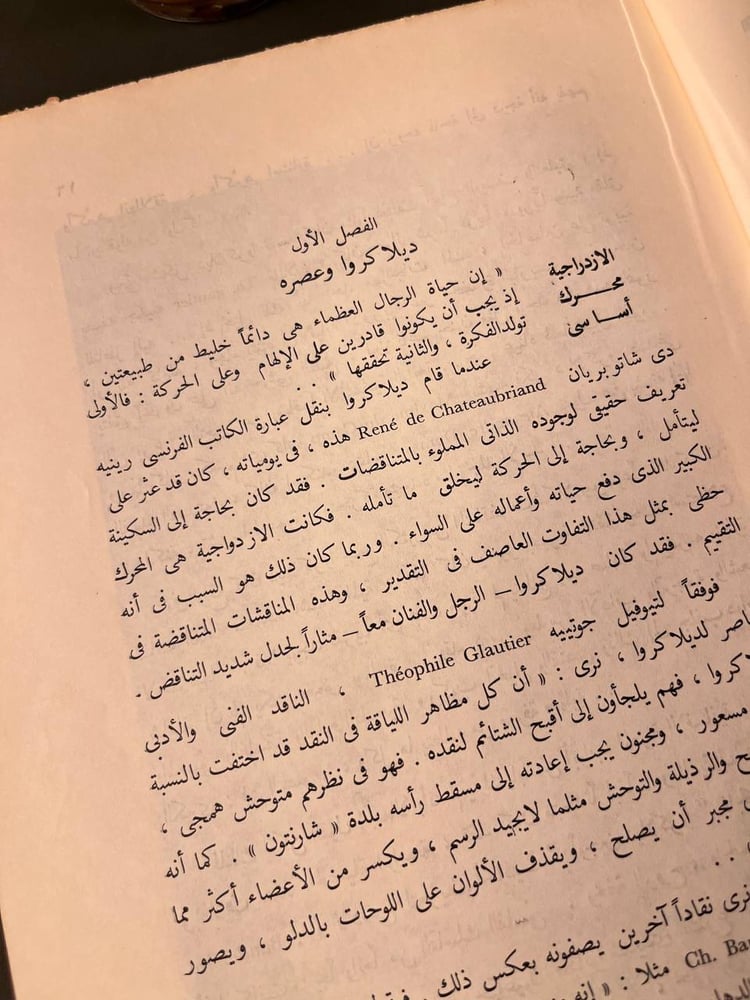 الفصل الأول
ديلاكروا وعصره
الازدراجية
محرك
أساسى
« إن حياة الرجال العظماء هى دائماً خليط من طبيعتين ،
إذ يجب أن يكونوا قادرين على الإلهام وعلى الحركة : فالأولى
تولد الفكرة ، والثانية تحققها » . .
عندما قام ديلاكروا بنقل عبارة الكاتب الفرنسى رينيه
دى شاتوبريان René de Chateaubriand هذه ، فى يومياته ، كان قد عثر على
تعريف حقيقى لوجوده الذاتى المملوء بالمتناقضات . فقد كان بحاجة إلى السكينة
ليتأمل ، وبحاجة إلى الحركة ليخلق ما تأمله . فكانت الازدواجية هى المحرك
الكبير الذى دفع حياته وأعماله على السواء . وربما كان ذلك هو السبب فى أنه
حظى بمثل هذا التفاوت العاصف فى التقدير ، وهذه المناقشات المتناقضة فى
التقييم . فقد كان ديلاكروا – الرجل والفنان معاً – مثاراً لجدل شديد التناقض .
فوفقاً لتيوفيل جوتييه Théophile Glautier ، الناقد الفنى والأدبى
لديلاكروا ، نرى : « أن كل مظاهر اللياقة فى النقد قد اختفت بالنسبة
، فهم يلجأون إلى أقبح الشتائم لنقده . فهو فى نظرهم متوحش همجى ،
مسعور ، ومجنون يجب إعادته إلى مسقط رأسه بلدة « شارنتون » . كما أنه
والرذيلة والتوحش مثلما لا يجيد الرسم ، ويكسر من الأعضاء أكثر مما
مجبر أن يصلح ، ويقذف الألوان على اللوحات بالدلو ، ويصور
» . .
نرى نقاداً آخرين يصفونه بعكس ذلك ،
Ch. مثلا : « إنه